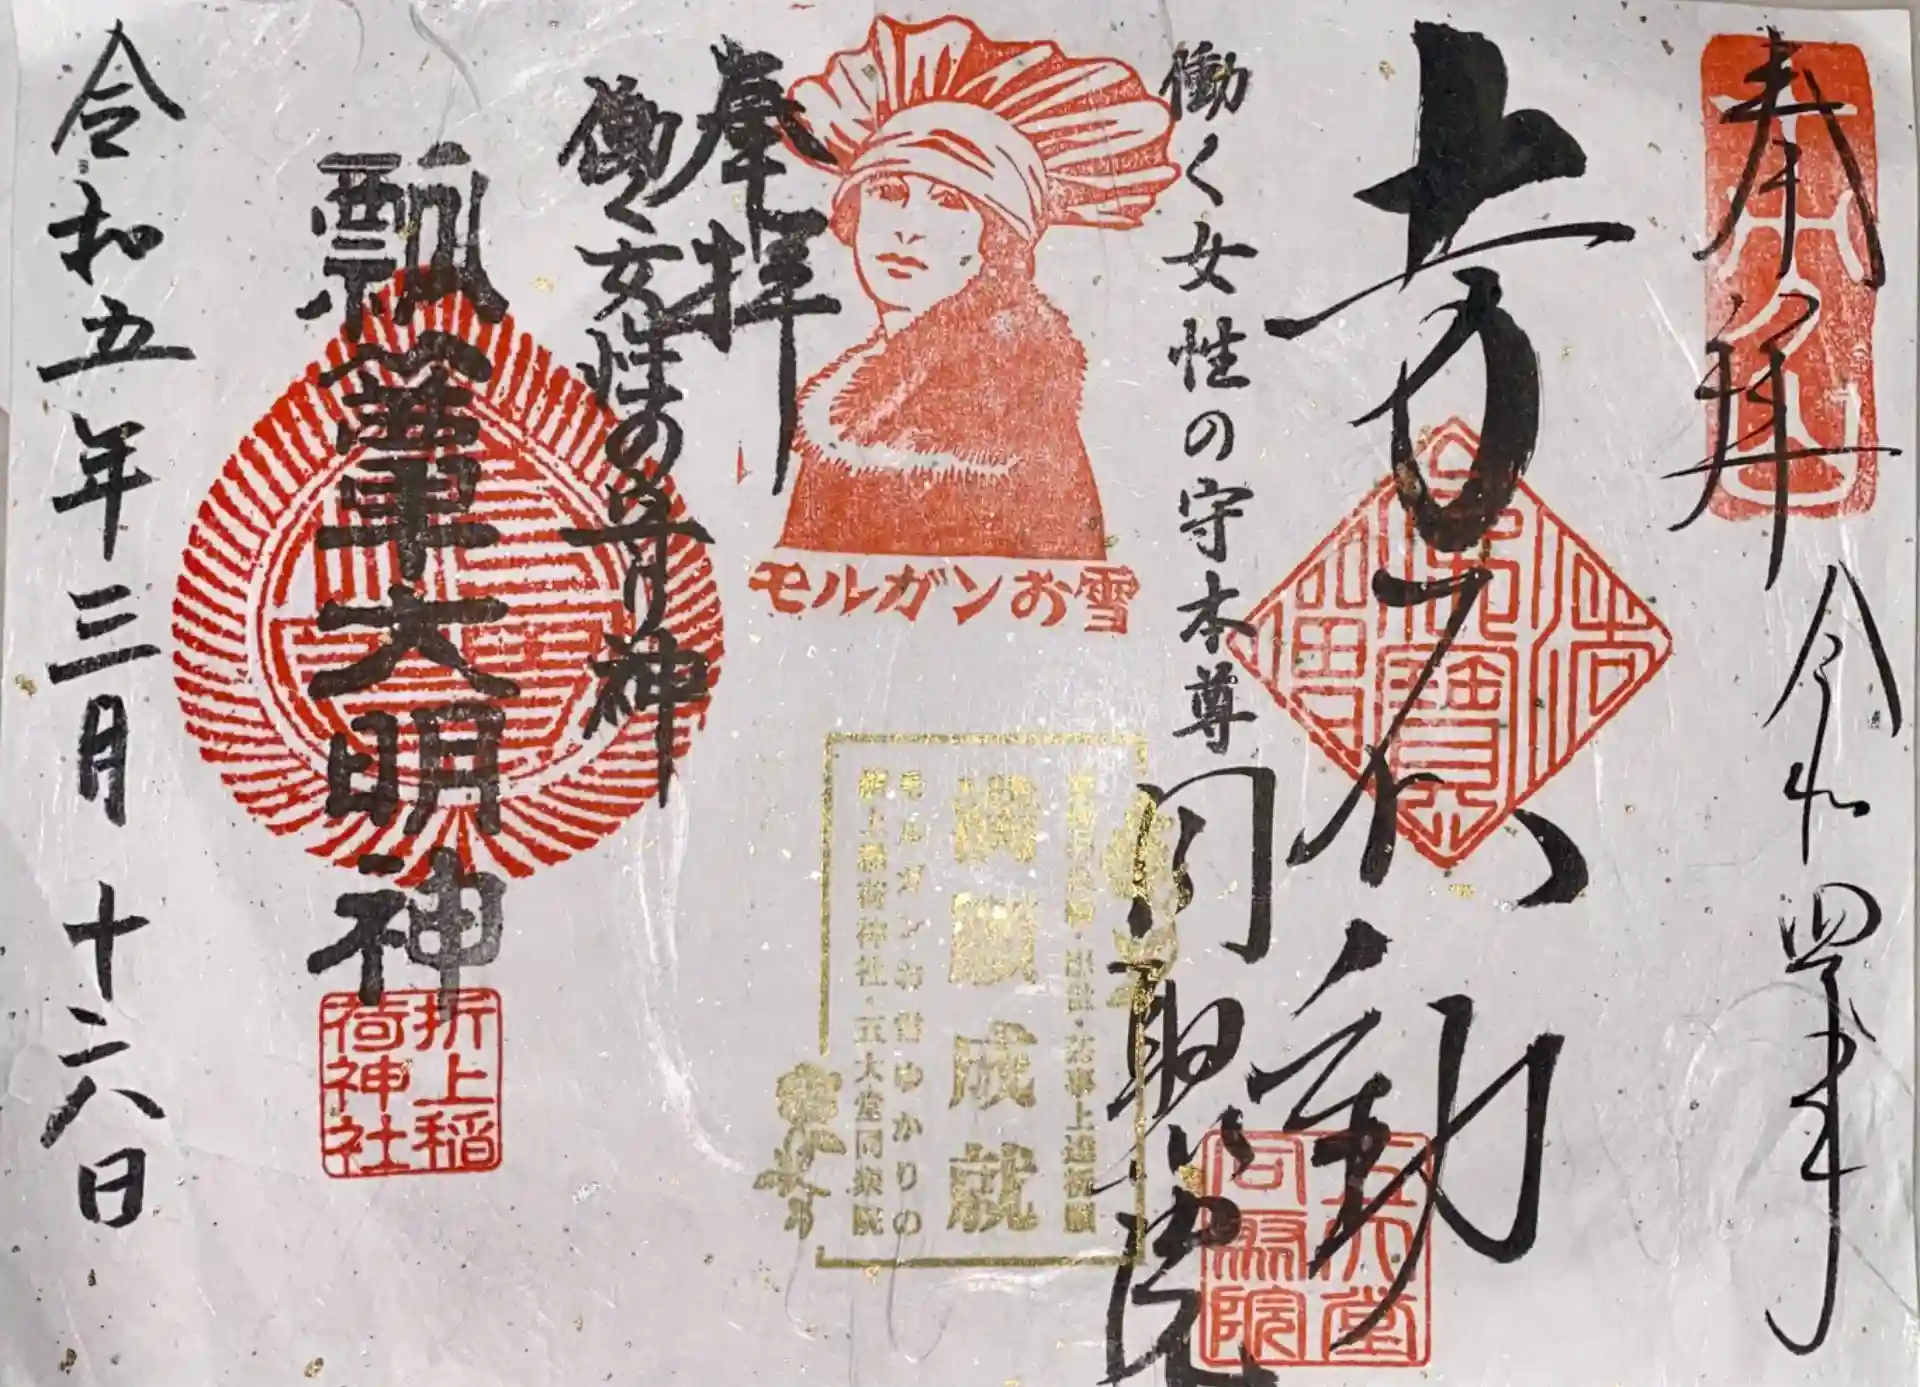 奉拝
令和四年
不動
働く女性の守本尊
同聚院
五大堂
同聚院
モルガンお雪
満願成就
モルガンお雪ゆかりの
折上稲荷神社・五大堂同聚院
奉拝
働く女性の守り神
瓢箪大明神
折上稲
荷神社
令和五年三月十六日